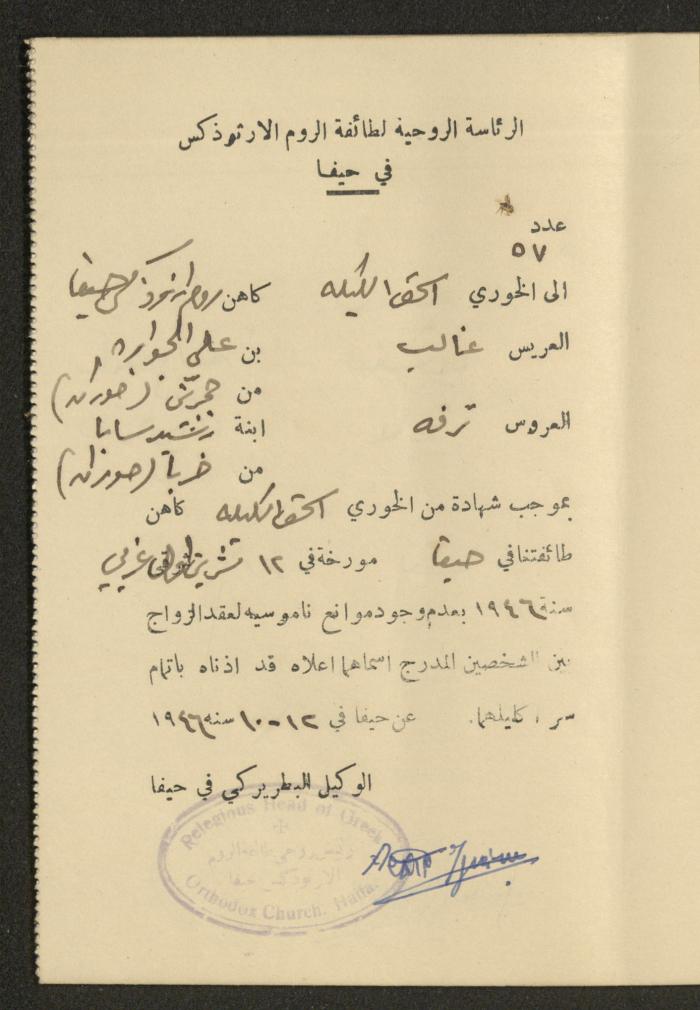 الرئاسة الروحية لطائفة الروم الارثوذكس
في حيفا
عدد
٥٧
الى الخوري اسحق الكيله كاهن روم ارثوذكس حيفا
العريس غالب بن علي الجوابره
من (حوران)
العروس ترفه ابنة رشيد سابا
من خربا (حوران)
بموجب شهادة من الخوري اسحق الكيله كاهن
طائفتنا في حيفا مورخة في ١٢ تشرين اول غربي
سنة ١٩٤٦ بعدم وجود موانع ناموسيه لعقد الزواج
بين الشخصين المدرج اسماهما اعلاه قد اذناه باتمام
سر اكليلهما. عن حيفا في ١٢-١٠ سنه ١٩٤٦
الوكيل البطريركي في حيفا
Relegious Head of Greek
رئيس روحي طائفة الروم
الارثوذكس حيفا
Orthodox Church. Haifa.